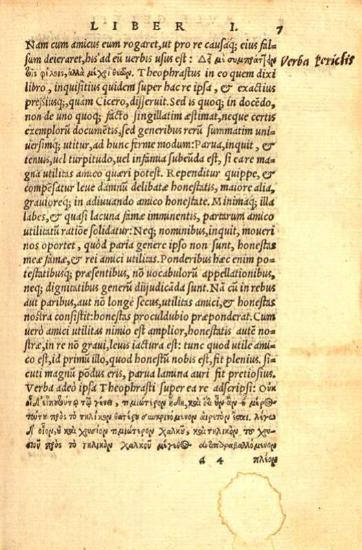 LIBER I. 7
Nam cum amicus eum rogaret, ut pro re causaq; eius fal-
sum deieraret, his ad eū uerbis usus est: Δεῖ μὲ συμπράτ͂ειν
Verba Periclis
τοῖς φίλοις, ἀλλὰ μέχρι θεῶν. Theophrastus in eo quem dixi
libro, inquisitius quidem super hac re ipsa, & exactius
pressiusq;, quam Cicero, disserit. Sed is quoq; in docēdo,
non de uno quoq; facto singillatim æstimat, neque certis
exemplorū documētis, sed generibus rerū summatim uni-
uersimq; utitur, ad hunc ferme modum: Parua, inquit, &
tenuis, uel turpitudo, uel infamia subeūda est, si ea re ma-
gna utilitas amico quæri potest. Rependitur quippe, &
compēsatur leue damnū delibatæ honestatis, maiore alia,
grauioreq; in adiuuando amico honestate. Minimaq; illa
labes, & quasi lacuna famæ imminentis, partarum amico
utilitatū ratiōe solidatur: Neq; nominibus, inquit, moueri
nos oportet, quòd paria genere ipso non sunt, honestas
meæ famæ, & rei amici utilitas. Ponderibus hæc enim po-
testatibusq; præsentibus, nō uocabulorū appellationibus,
neq; dignitatibus generū diiudicāda sunt. Nā cū in rebus
aut paribus, aut nō longè secus, utilitas amici, & honestas
nostra consistit: honestas proculdubio præponderat. Cum
uerò amici utilitas nimio est amplior, honestatis autē no-
stræ, in re nō graui, leuis iactura est: tunc quod utile ami-
co est, id primū illo, quod honestū nobis est, fit plenius. si-
cuti magnū pōdus æris, parua lamina auri fit pretiosius.
Verba adeò ipsa Theophrasti super ea re adscripsi: Οὐκ
τοῦτο πρὸς τὸ τηλίκον θατέρου συγκρινόμενον αἱρετὸν ἔσται. λέγω
δ᾽ οἷον, οὐ καὶ χρυσίον τιμιώτερον χαλκοῦ, καὶ τηλίκον τοῦ χρυ-
σίου πρὸς τὸ τηλίκον χαλκοῦ μέγεθος ἀντιπαραβαλλόμενον
a 4 πλέον